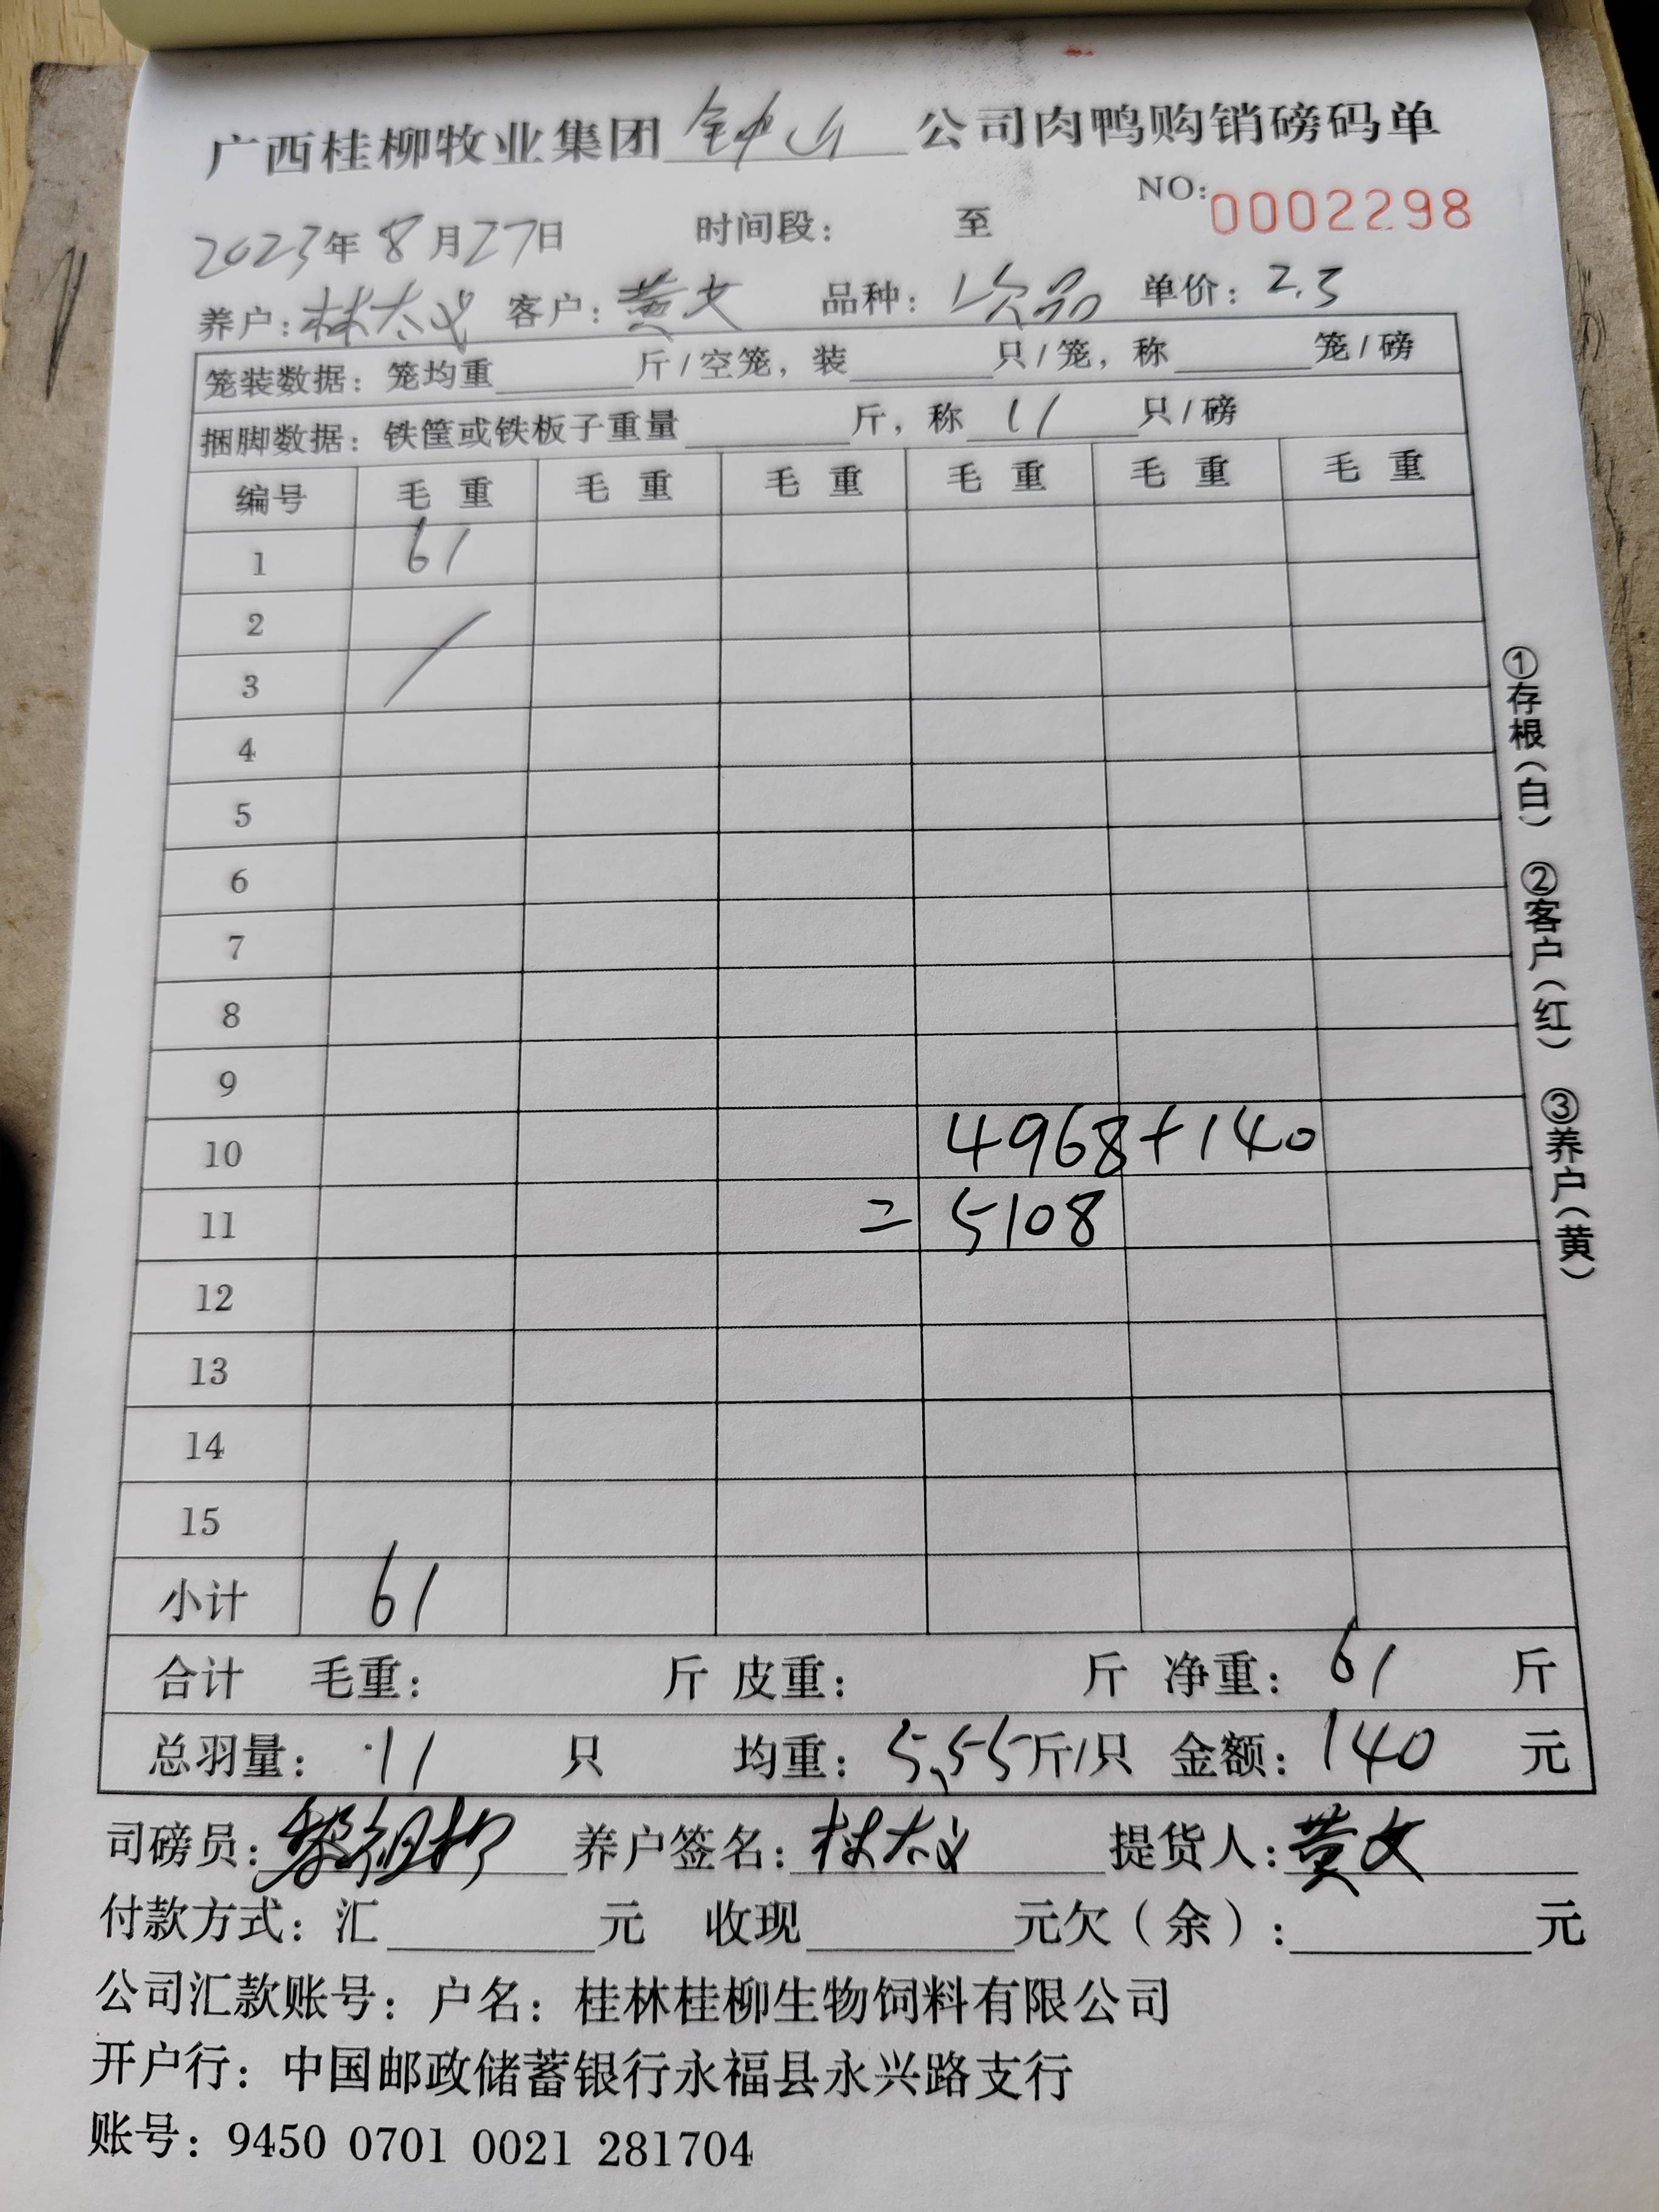 广西桂柳牧业集团 钟山 公司肉鸭购销磅码单
NO: 0002298
2023年 8 月 27日 时间段: 至
养户: 林太义 客户: 黄文 品种: 次品 单价: 2.3
笼装数据: 笼均重 斤/空笼, 装 只/笼, 称 笼/磅
捆脚数据: 铁筐或铁板子重量 斤, 称 11 只/磅
编号 毛重 毛重 毛重 毛重 毛重 毛重
1 61
2
3
4
5
6
7
8
9
10 4968+140
11 =5108
12
13
14
15
小计 61
合计 毛重: 斤 皮重: 斤 净重: 61 斤
总羽量: 11 只 均重: 5.55斤/只 金额: 140 元
司磅员: 养户签名: 林太义 提货人: 黄文
付款方式: 汇 元 收现 元欠(余): 元
公司汇款账号: 户名: 桂林桂柳生物饲料有限公司
开户行: 中国邮政储蓄银行永福县永兴路支行
账号: 9450 0701 0021 281704
①存根(白) ②客户(红) ③养户(黄)